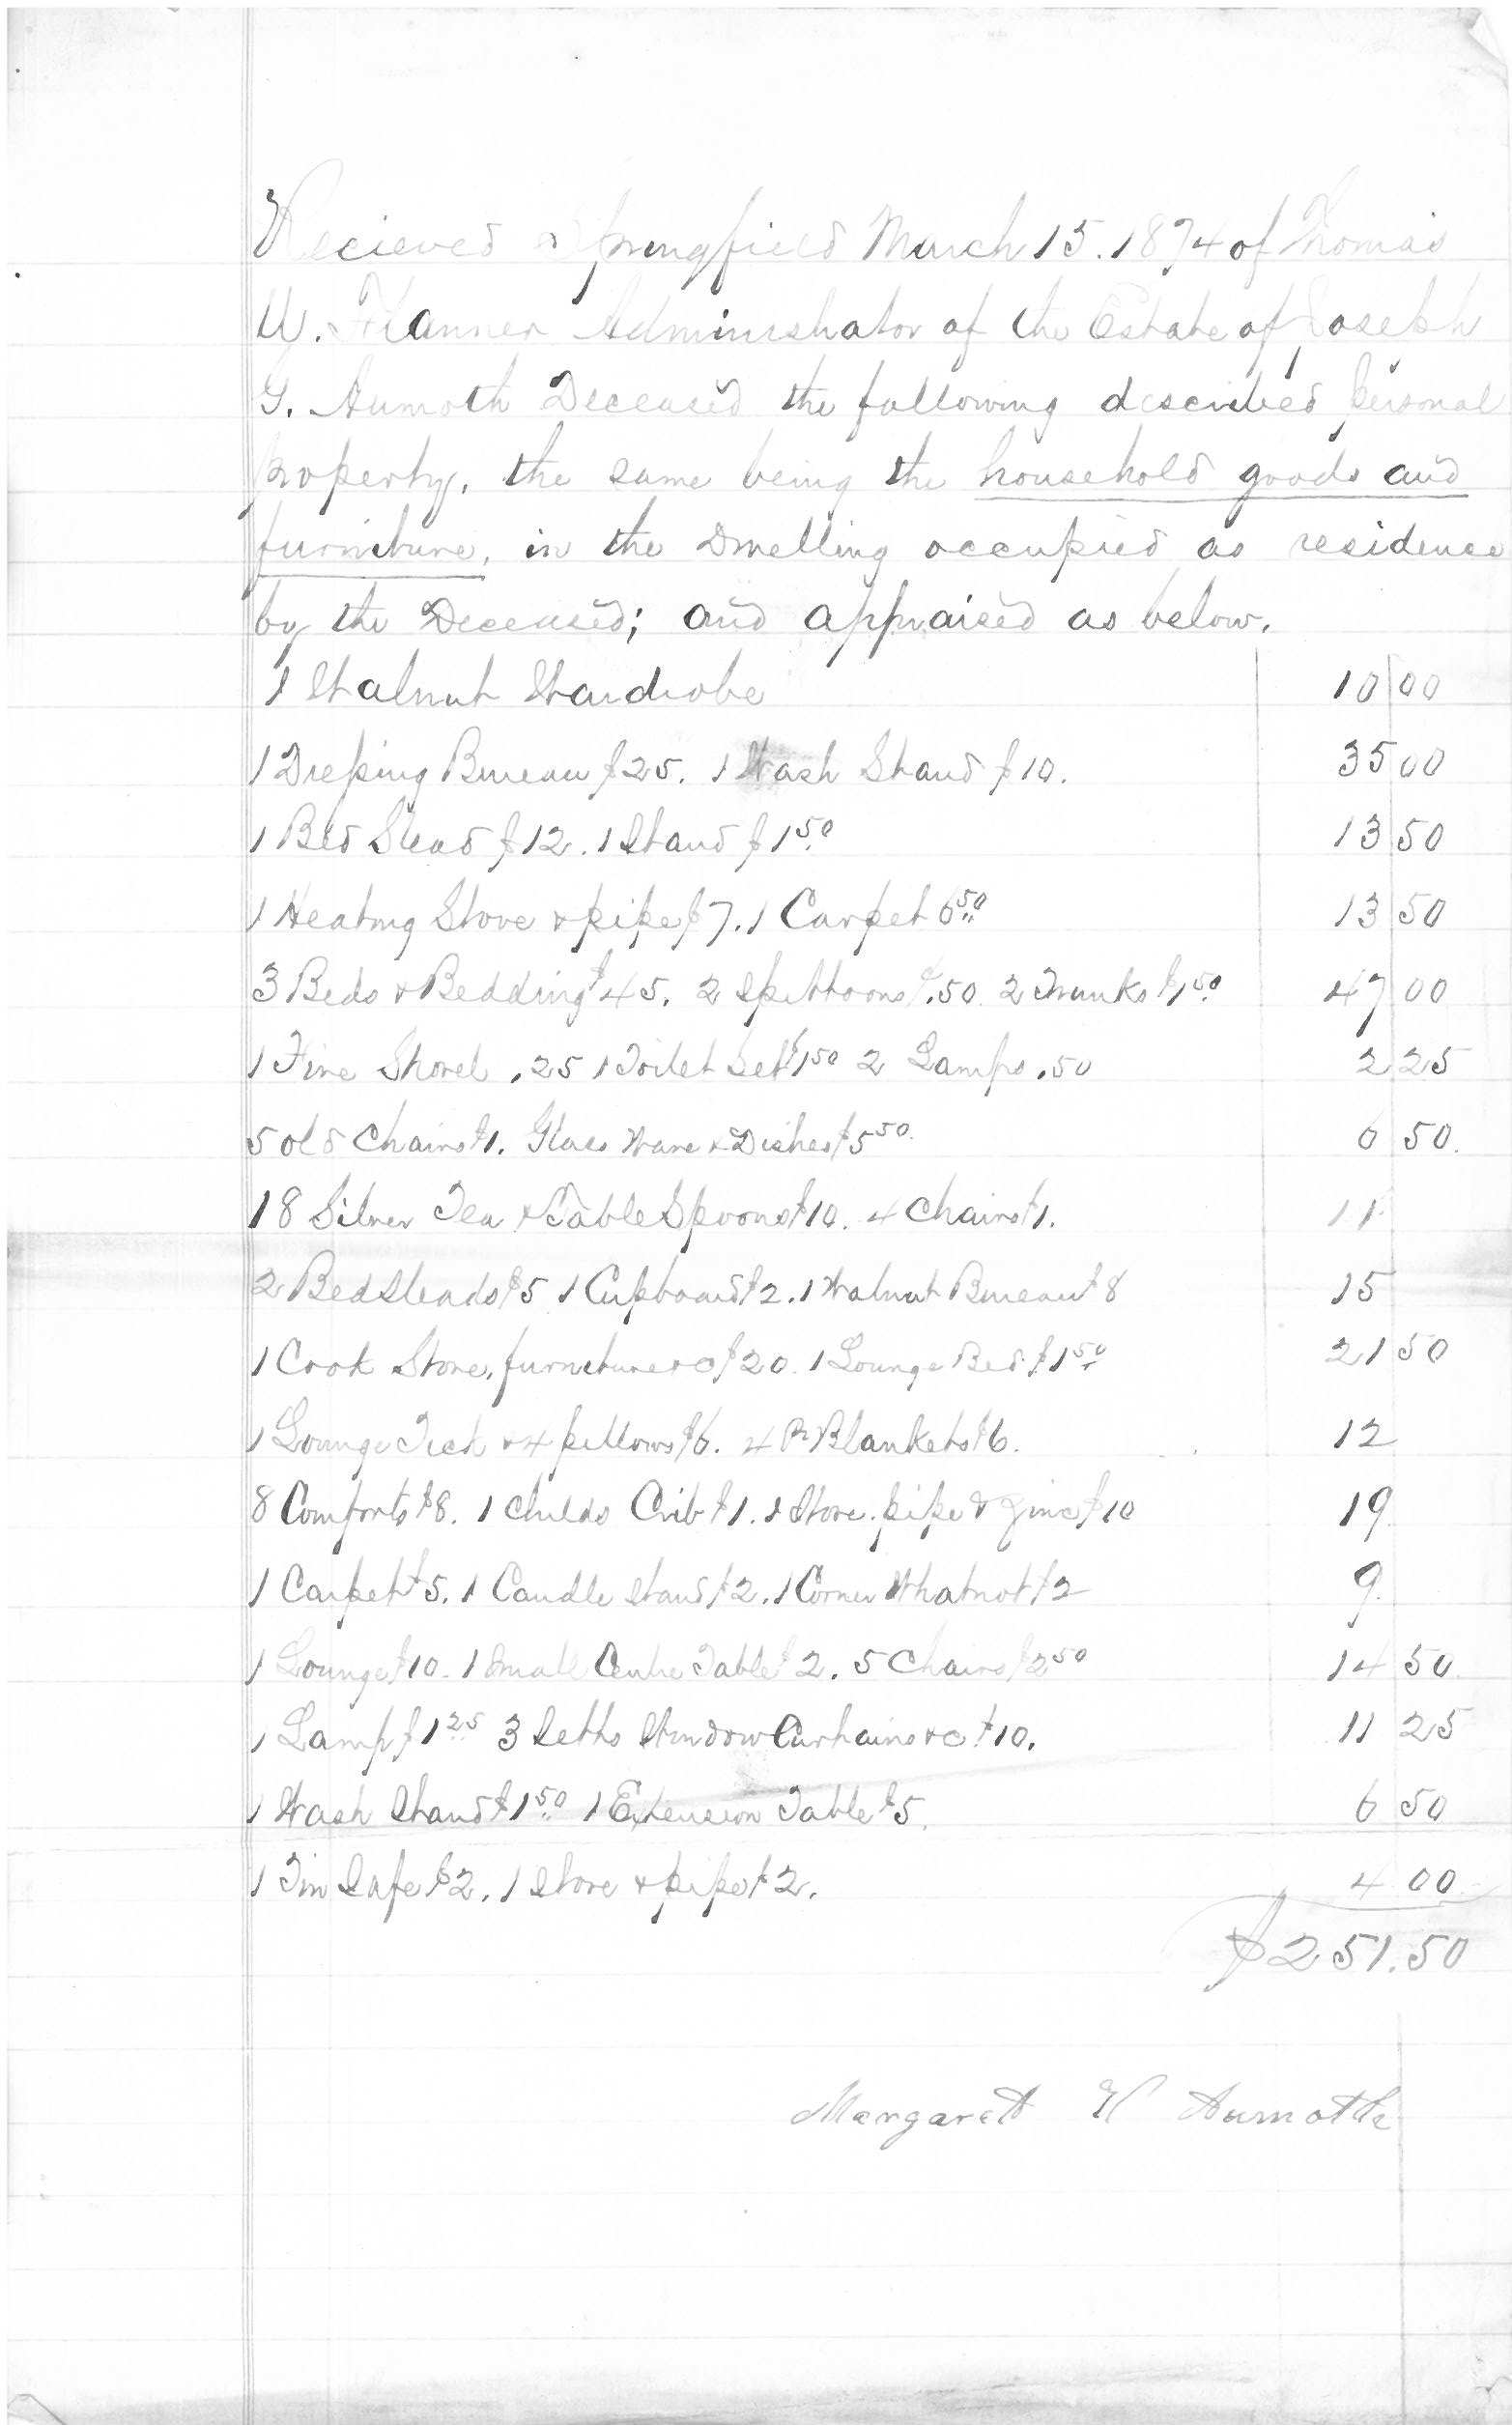 Recieved Springfield March 15. 1874 of Thomas
W. Flanner Administrator of the Estate of Joseph
G. Aumoth Deceased the following described personal
property, the same being the household goods and
furniture, in the Dwelling occupied as residence
by the Deceased; and appraised as below.
1 Walnut Wardrobe 10 00
1 Dressing Bureau $25. 1 Wash Stand $10. 35 00
1 Bed Stead $12. 1 Stand $1 50 13 50
1 Heating Stove & pipe $7. 1 Carpet 6 50 13 50
3 Beds & Bedding $45. 2 Spittoons $.50 2 Trunks $1 50 47 00
1 Fire Shovel .25 1 Toilet Set $1 50 2 Lamps .50 2 25
5 old Chairs $1. Glass Ware & Dishes $5 50. 6 50.
18 Silver Tea & Table Spoons $10. 4 Chairs $1. 11
2 Bedsteads $5 1 Cupboard $2. 1 Walnut Bureau $8 15
1 Cook Stove, furniture &c $20. 1 Lounge Bed $1 50 21 50
1 Lounge Tick & 4 pillows $6. 4 Pr Blankets $6. 12
8 Comforts $8. 1 Childs Crib $1. 1 Stove. pipe & Zinc $10 19
1 Carpet $5. 1 Candle Stand $2. 1 Corner Whatnot $2 9
1 Lounge $10. 1 Small Centre Table $2. 5 Chairs $2 50 14 50
1 Lamp $1 25 3 Setts Window Curtains &c $10. 11 25
1 Wash Stand $1 50 1 Extension Table $5. 6 50
1 Tin Safe $2. 1 Stove & pipe $2. 4 00
$251.50
Margaret H Aumoth